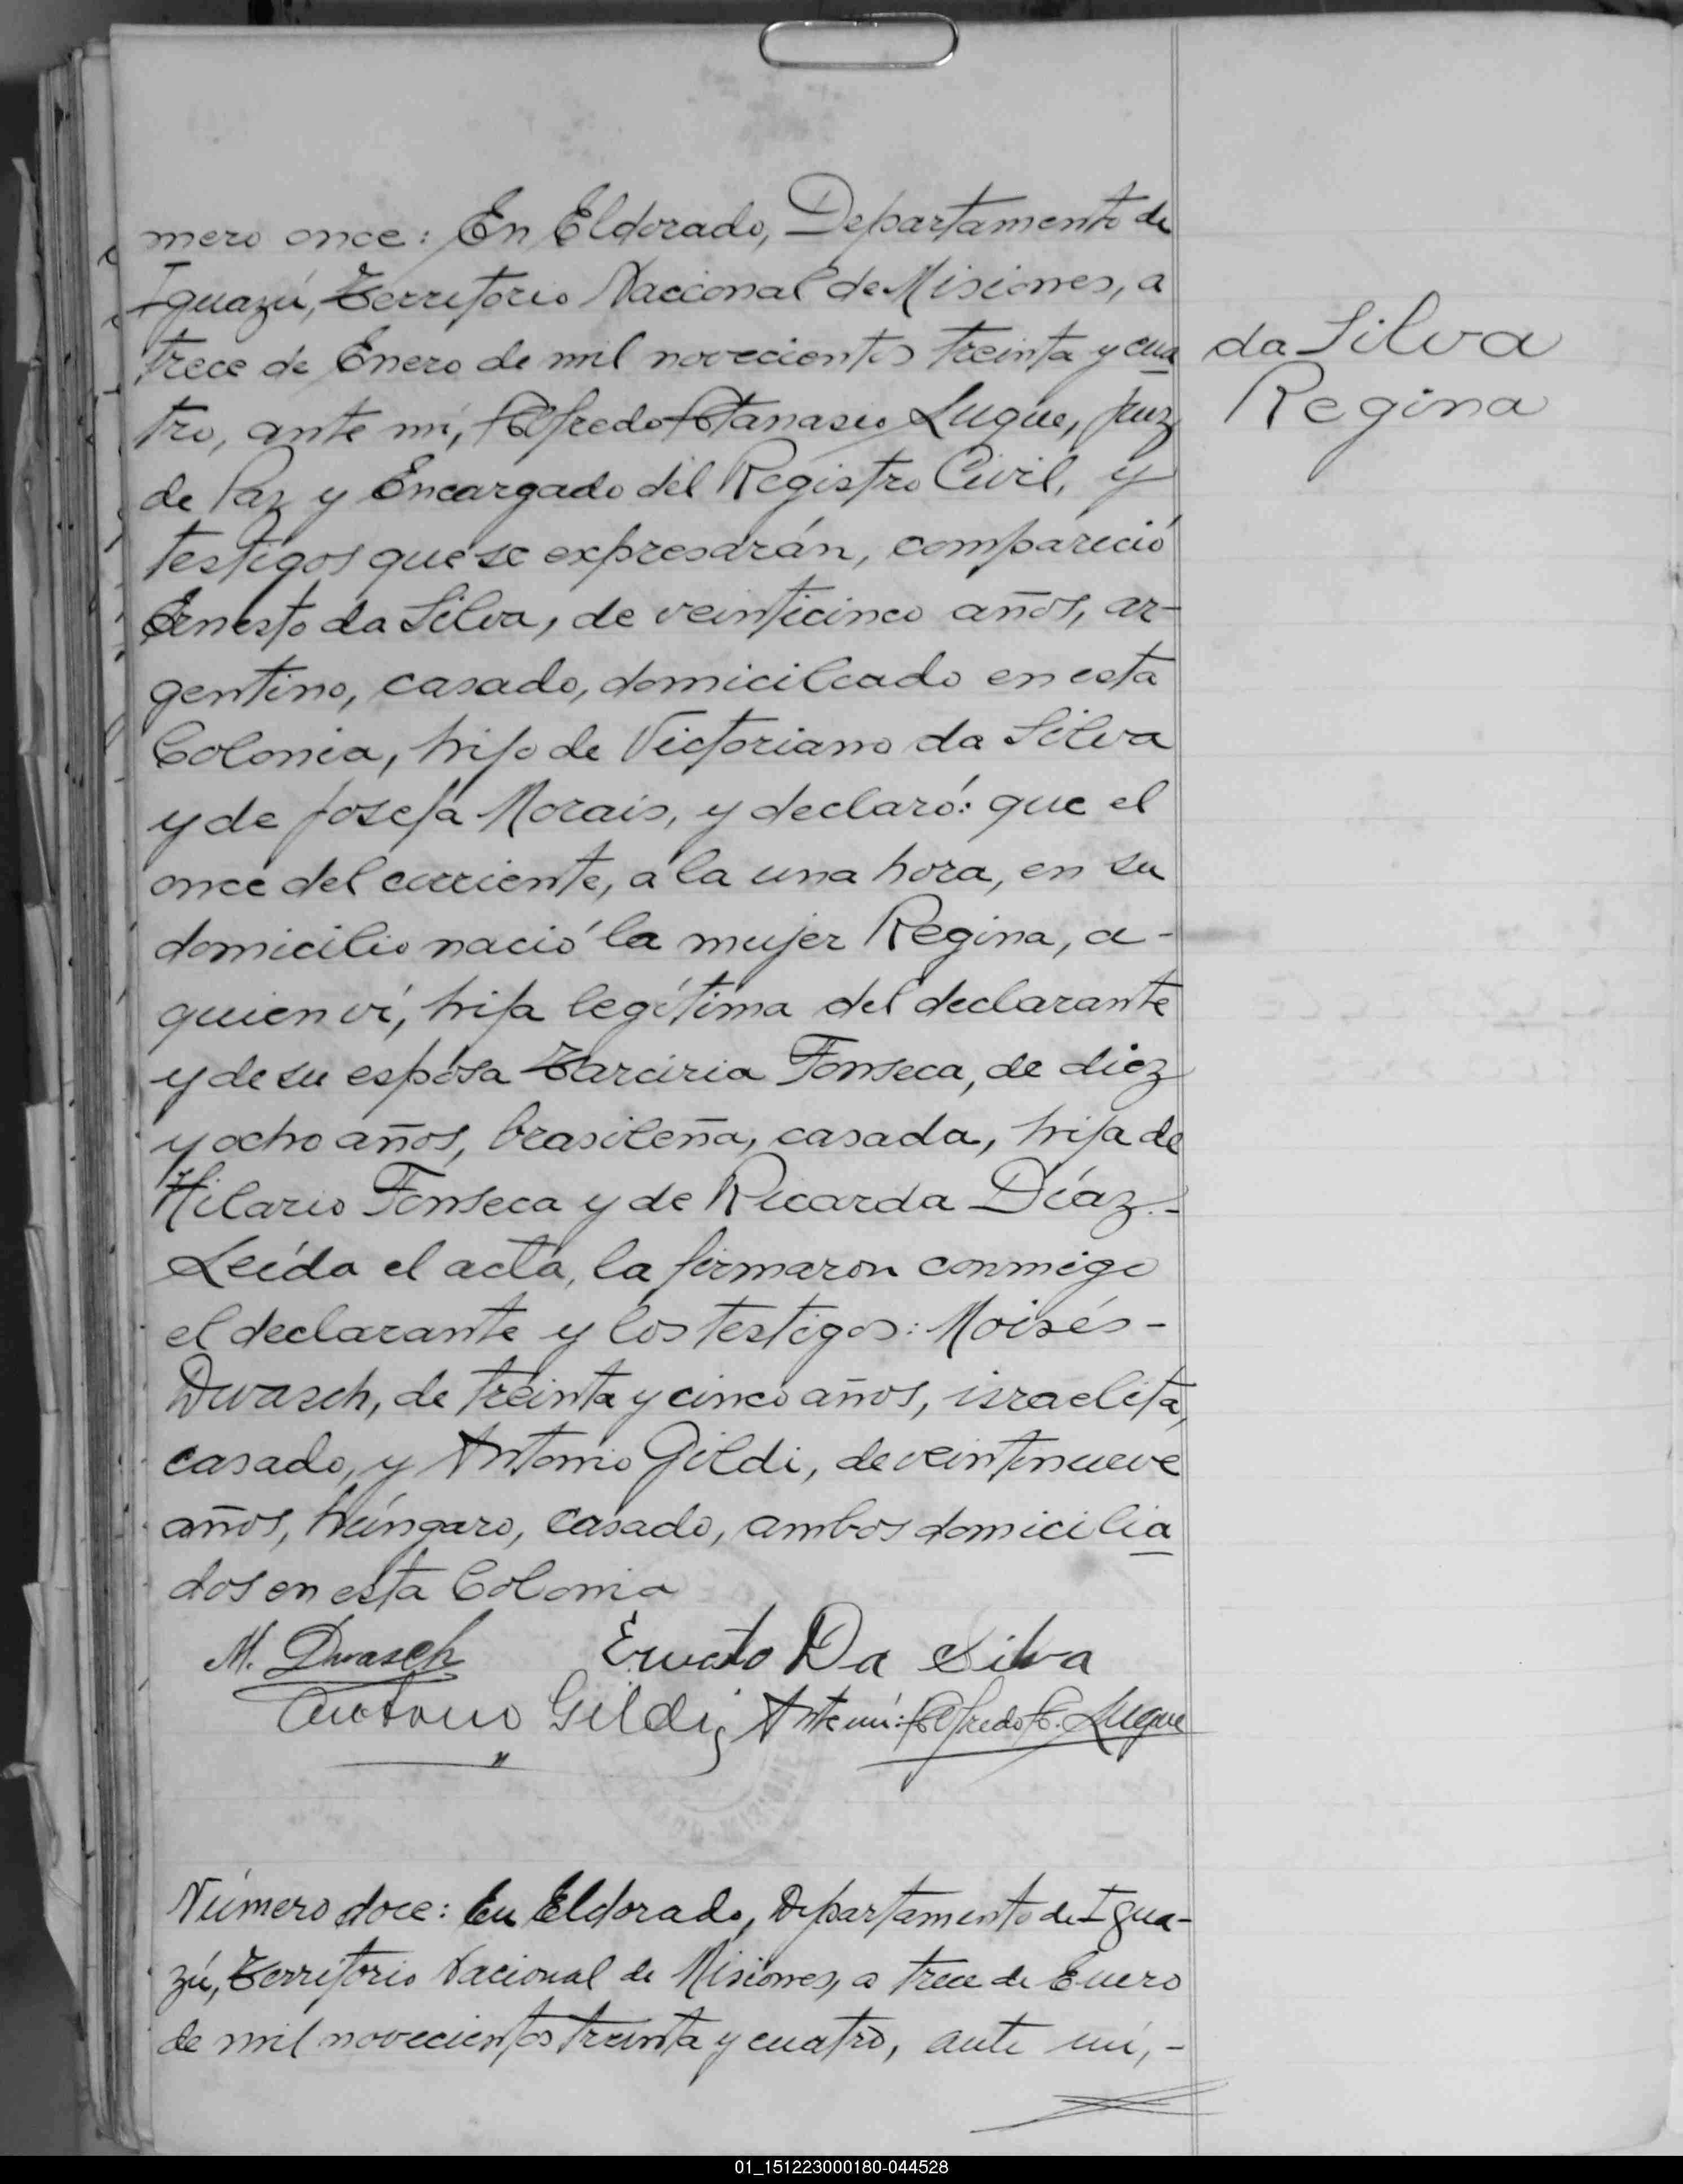 mero once: En Eldorado, Departamento de
Iguazú, Territorio Nacional de Misiones, a
trece de Enero de mil novecientos treinta y cua
tro, ante mí, Alfredo Atanasio Luque, Juez
de Paz y Encargado del Registro Civil, y
testigos que se expresarán, compareció
Ernesto da Silva, de veinticinco años, ar-
gentino, casado, domiciliado en esta
Colonia, hijo de Victoriano da Silva
y de Josefa Morais, y declaró: que el
once del corriente, a la una hora, en su
domicilio nació la mujer Regina, a-
quien ví, hija legítima del declarante
y de su esposa Tarciria Fonseca, de diez
y ocho años, brasileña, casada, hija de
Hilario Fonseca y de Ricarda Díaz.-
Leída el acta, la firmaron conmigo
el declarante y los testigos: Moisés-
Dwasch, de treinta y cinco años, israelita,
casado, y Antonio Gildi, de veintinueve
años, húngaro, casado, ambos domicilia
dos en esta Colonia
M. Dwasch Ernesto Da Silva
Antonio Gildi Ante mí: Alfredo A. Luque
da Silva
Regina
Número doce: En Eldorado, Departamento de Igua-
zú, Territorio Nacional de Misiones, a trece de Enero
de mil novecientos treinta y cuatro, ante mí,-
01_151223000180-044528